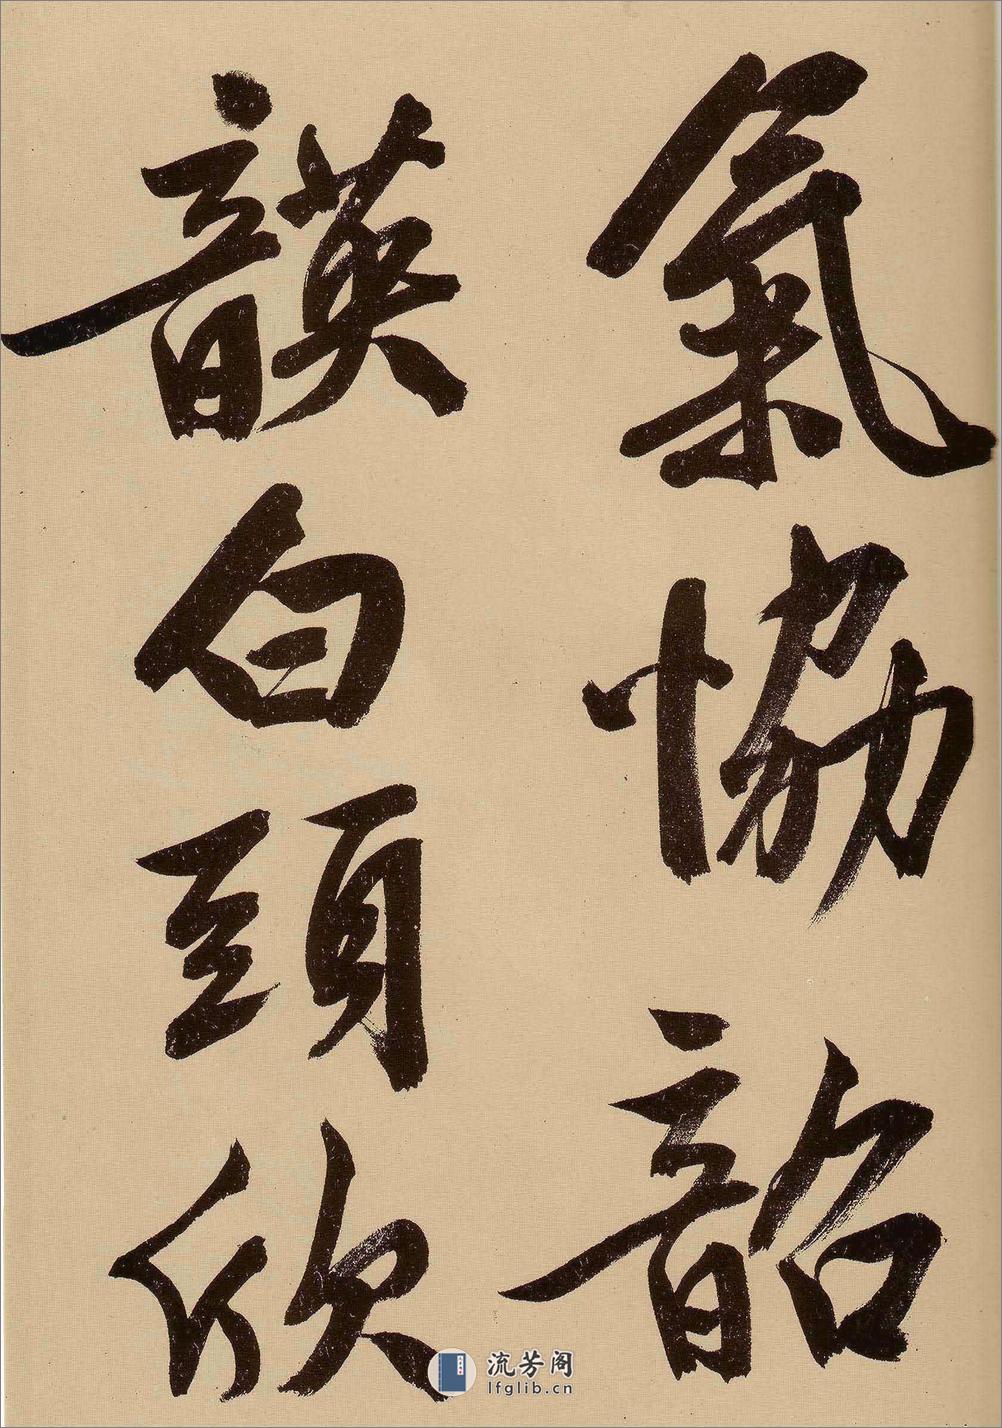 氣協韶
韺白頭欣
流芳阁
lfglib.cn